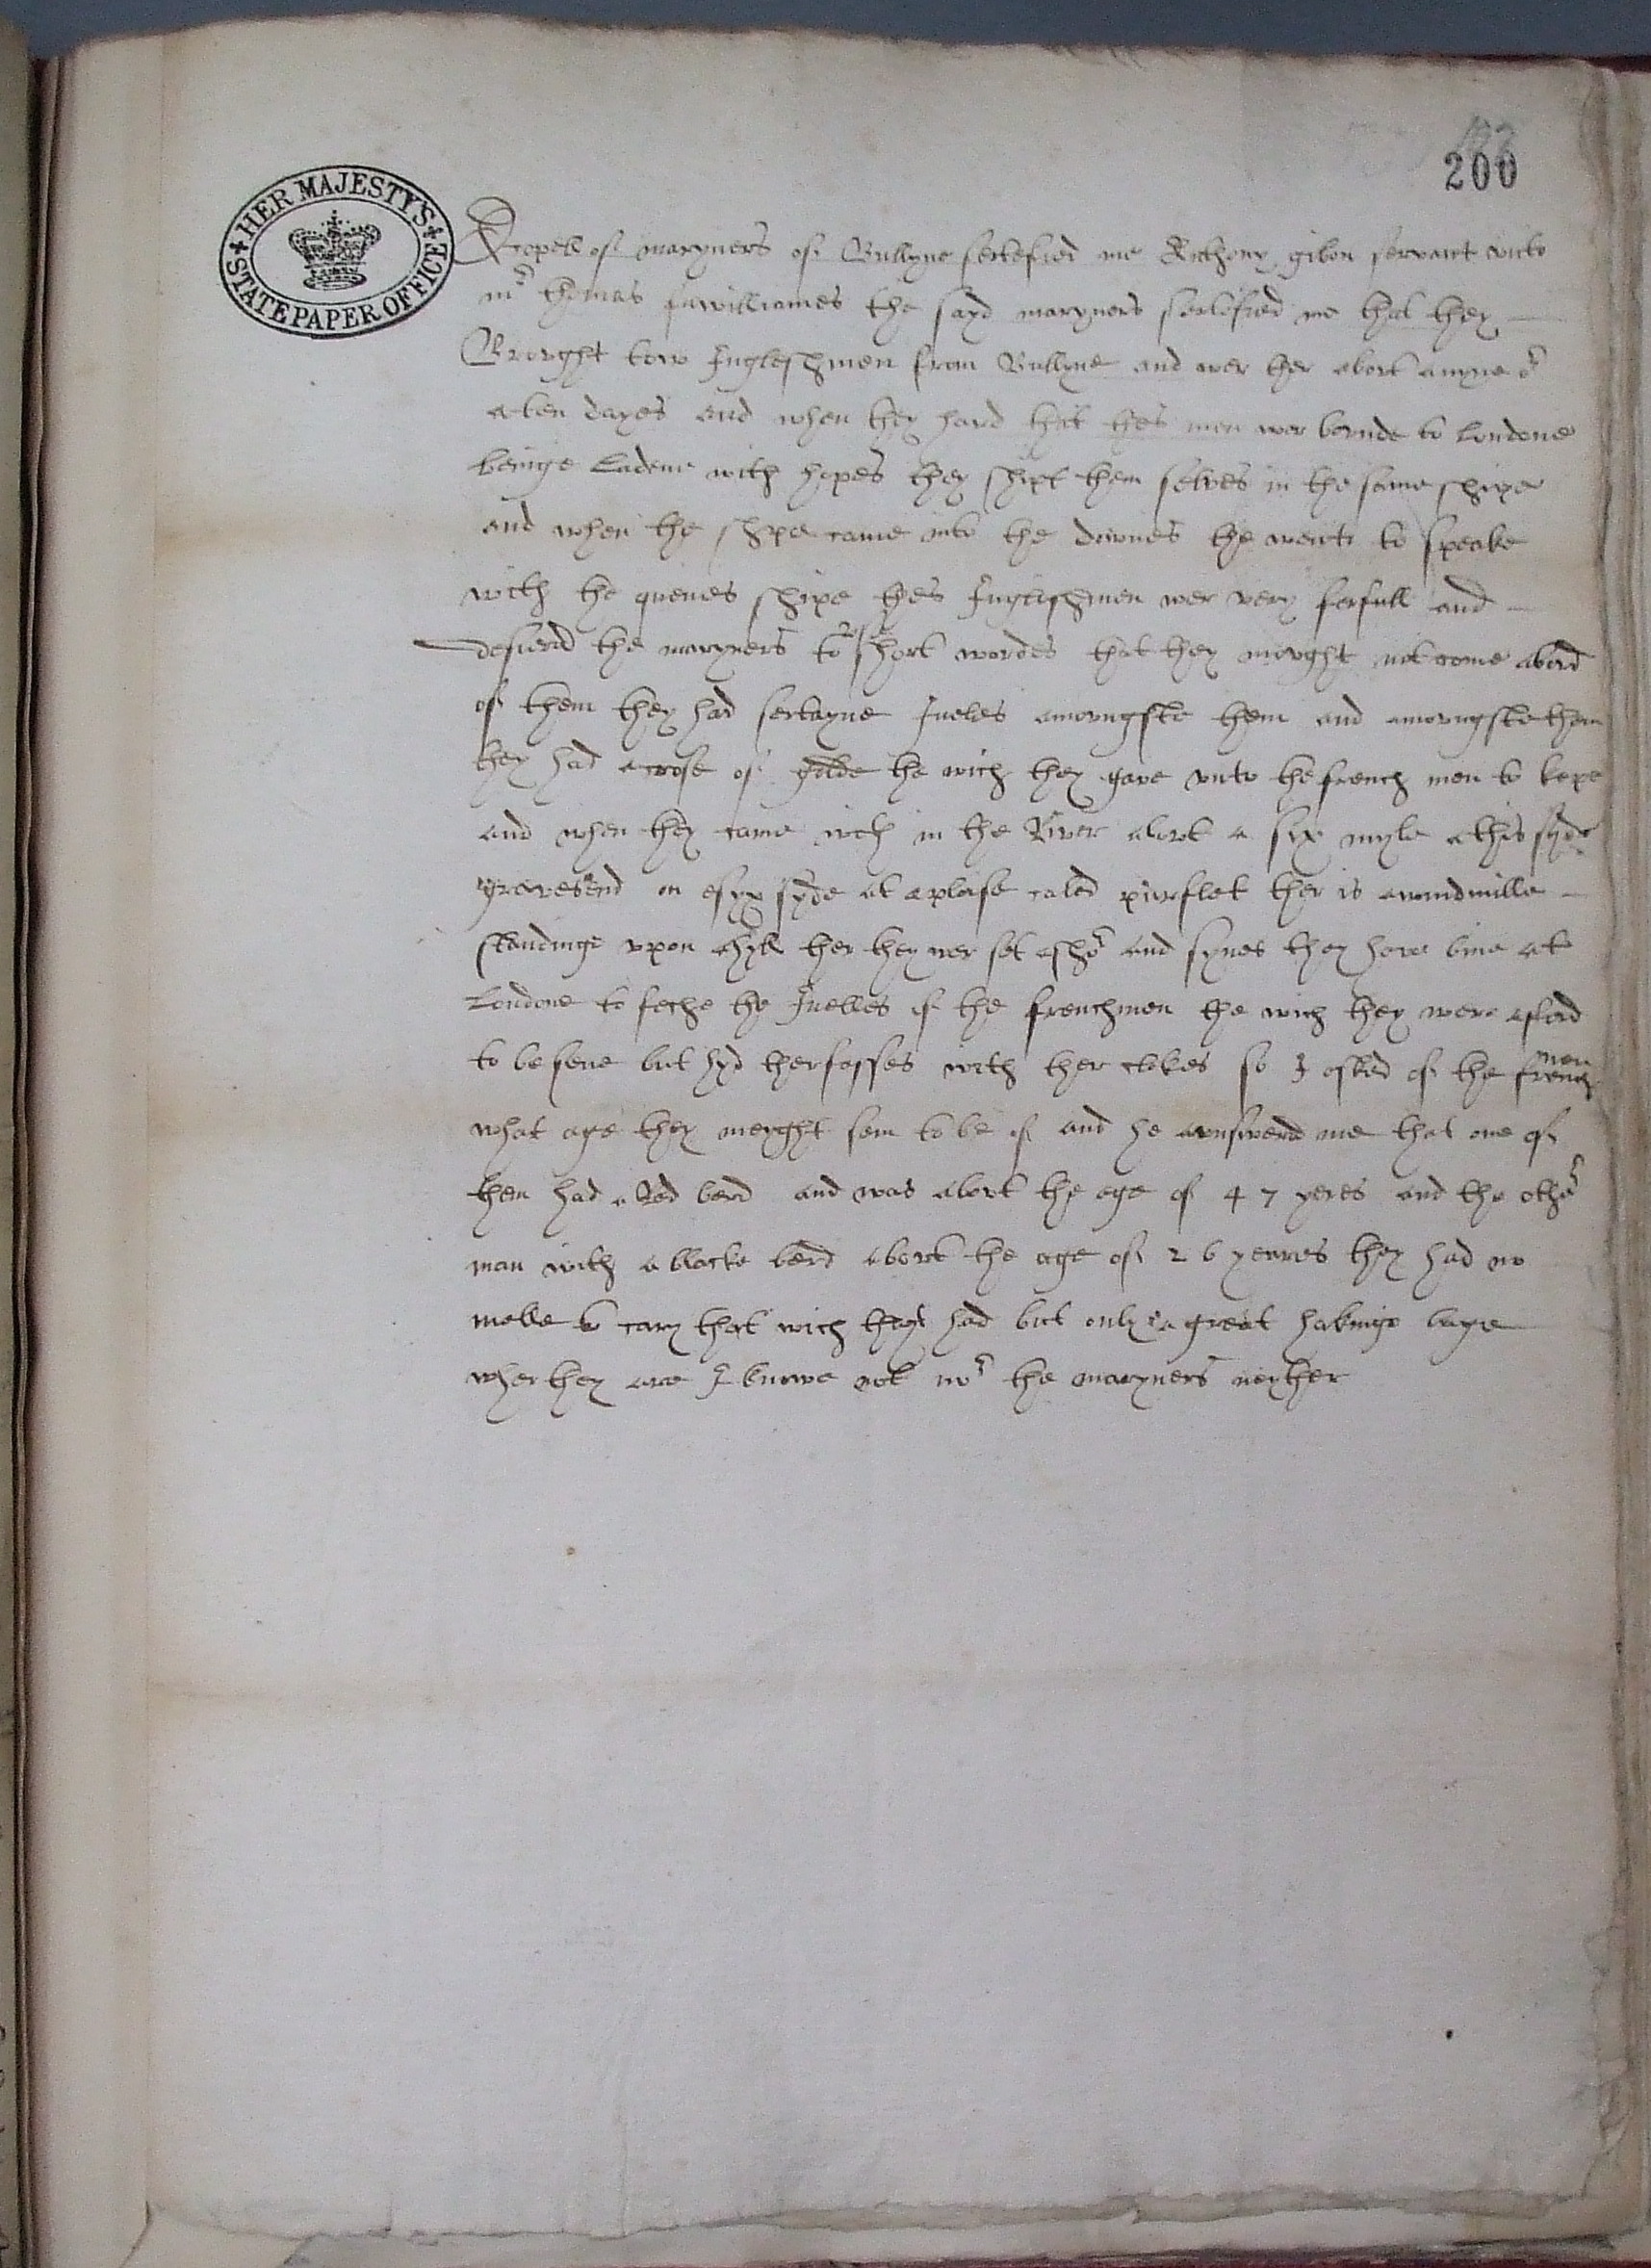 200
HER MAJESTY'S STATE PAPER OFFICE
A copell of maryners of Bullyne sertefied me Anthony gibon servant unto
mr thomas fuwilliames the sayd maryners sertefied me that they
Brought tow Inglesshmen from Bullyne and wer ther about a nyne or
a ten dayes and when they hard that thes men wer bounde to Londone
beinge Ladene with hopes they shipt them selves in the same shipe
and when the shipe came into the downes the wente to speake
with the quenes shipe thes Inglishmen wer very ferfull and
desierd the maryners to short wordes that they mought not come abord
of them they had sertayne Jueles amoungste them and amoungste them
they had a crose of golde the wich they gave unto the french men to kepe
and when they came with in the River about a six myle a this syde
gravesend on esyx syde at a plase caled purflet ther is a windmille
standinge upon a hyll ther they wer set a shor and synes they have bine at
Londone to feche the Juelles of the frenchmen the wich they were aferd
to be sene but hyd ther fasses with ther clokes so I asked of the french men
what age they meyght sem to be of and he aunswerd me that one of
them had a Red berd and was about the age of 47 yeres and the other
man with a blacke berd about the age of 26 yeares they had no
malle to cary that wich they had but only a great hakinge bage
wher they are I knowe not nor the maryners neyther